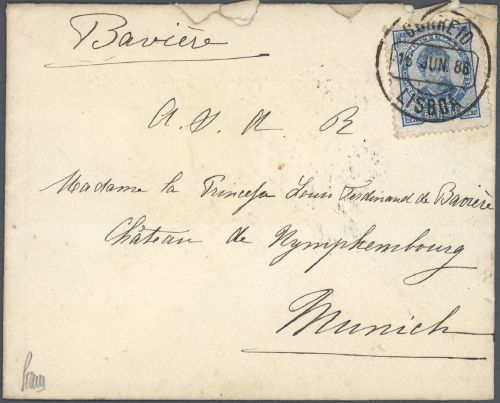 Bavière
CORREIO
16 JUN. 86
LISBOA
A. S. A R
Madame la Princesse Louis Ferdinand de Bavière
Château de Nymphembourg
Munich